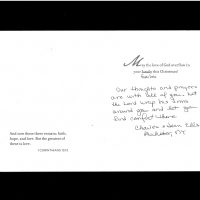 And now these three remain: faith,
hope, and love. But the greatest of
these is love.
I CORINTHIANS 13:13
May the love of God
your family this Christmas!
Our thoughts and prayers
are with all of you. Let
the Lord wrap his arms
around you and let you
find comfort there
Charles + Jean Ellis
NY